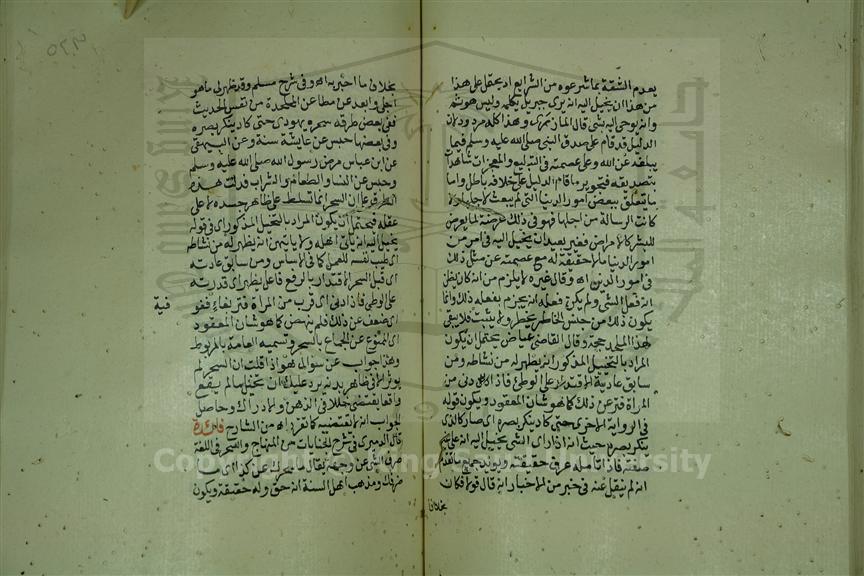 يعدم الثقة بما شرعوه من الشرايع اذ يحتمل على هذا
من هذا ان يخيل اليه انه يرى جبريل يكلمه وليس هو ثم
وانه يوحى اليه بشي قال المازري وهذا كله مردود لان
الدليل قد قام على صدق النبي صلى الله عليه وسلم فيما
يبلغه عن الله وعلى عصمته في التبليغ والمعجزات شاهدات
بتصديقه فتجويز ما قام الدليل على خلافه باطل واما
ما يتعلق ببعض امور الدنيا التي لم يبعث لاجلها ولا
كانت الرسالة من اجلها فهو في ذلك عرضة لما يعرض
للبشر كالامراض فغير بعيد ان يخيل اليه في امر من
امور الدنيا ما لا حقيقة له مع عصمته عن مثل ذلك
في امور الدين اه وقال غيره لا يلزم من انه كان يظن
انه فعل الشي ولم يكن فعله انه يجزم بفعله ذلك وانما
يكون ذلك من جنس الخاطر يخطر ولا يثبت فلا يبقى
لهذا الملحد حجة وقال القاضي عياض يحتمل ان يكون
المراد بالتخيل المذكور انه يظهر له من نشاطه ومن
سابق عادته الاقتدار على الوطئ فاذا دنى من
المرأة فتر عن ذلك كما هو شان المعقود ويكون قوله
في الرواية الاخرى حتى كاد ينكر بصره اي صار كالذي
ينكر بصره حيث انه اذا راى الشي يخيل اليه انه على غير
صفته فاذا تأمله عرف حقيقته ويؤيد جميع ما تقدم
انه لم ينقل عنه في خبر من الاخبار انه قال قولا فكان
بخلاف
بخلاف ما اخبر به اه وفي شرح مسلم وقد ظهر لي ما هو
اجلى وابعد عن مطاعن الملحدة من نفس الحديث
ففي بعض طرقه سحره يهودي حتى كاد ينكر بصره
وفي بعضها حبس عن عايشة سنة وعن البيهقي
عن ابن عباس مرض رسول الله صلى الله عليه وسلم
وحبس عن النسا والطعام والشراب فدلت هذه
الطرق على ان السحر انما تسلط على ظاهر جسده لا على
عقله فيحتمل ان يكون المراد بالتخيل المذكور اي في قوله
يخيل اليه انه ياتي اهله ولا ياتيهن انه يظهر له من نشاطه
اي طيب نفسه للعمل كما في الاساس ومن سابق عادته
اي قبل السحر الاقتدار بالرفع فاعل يظهر اي قدرته
على الوطئ فاذا دنى اي قرب من المرأة فتر بفاء ففوقية
اي ضعف عن ذلك فلم ينهض كما هو شان المعقود
اي الممنوع عن الجماع بالسحر وتسميه العامة بالمربوط
وهذا جواب عن سوال هو اذا قلت ان السحر لم
يوثر الا في ظاهر بدنه يرد عليك ان تخيل ما لم يقع
واقعا يقتضي خللا في الذهن والادراك وحاصل
الجواب انه لا يقتضيه كما تقرر اه من الشارح فائدة
قال الدميري في شرح الجنايات من المنهاج والسحر في اللغة
صرف الشي عن وجهه يقال ما سحرك عن كذا اي ما
صرفك ومذهب اهل السنة انه حق وله حقيقة ويكون
Copyright © King Saud University